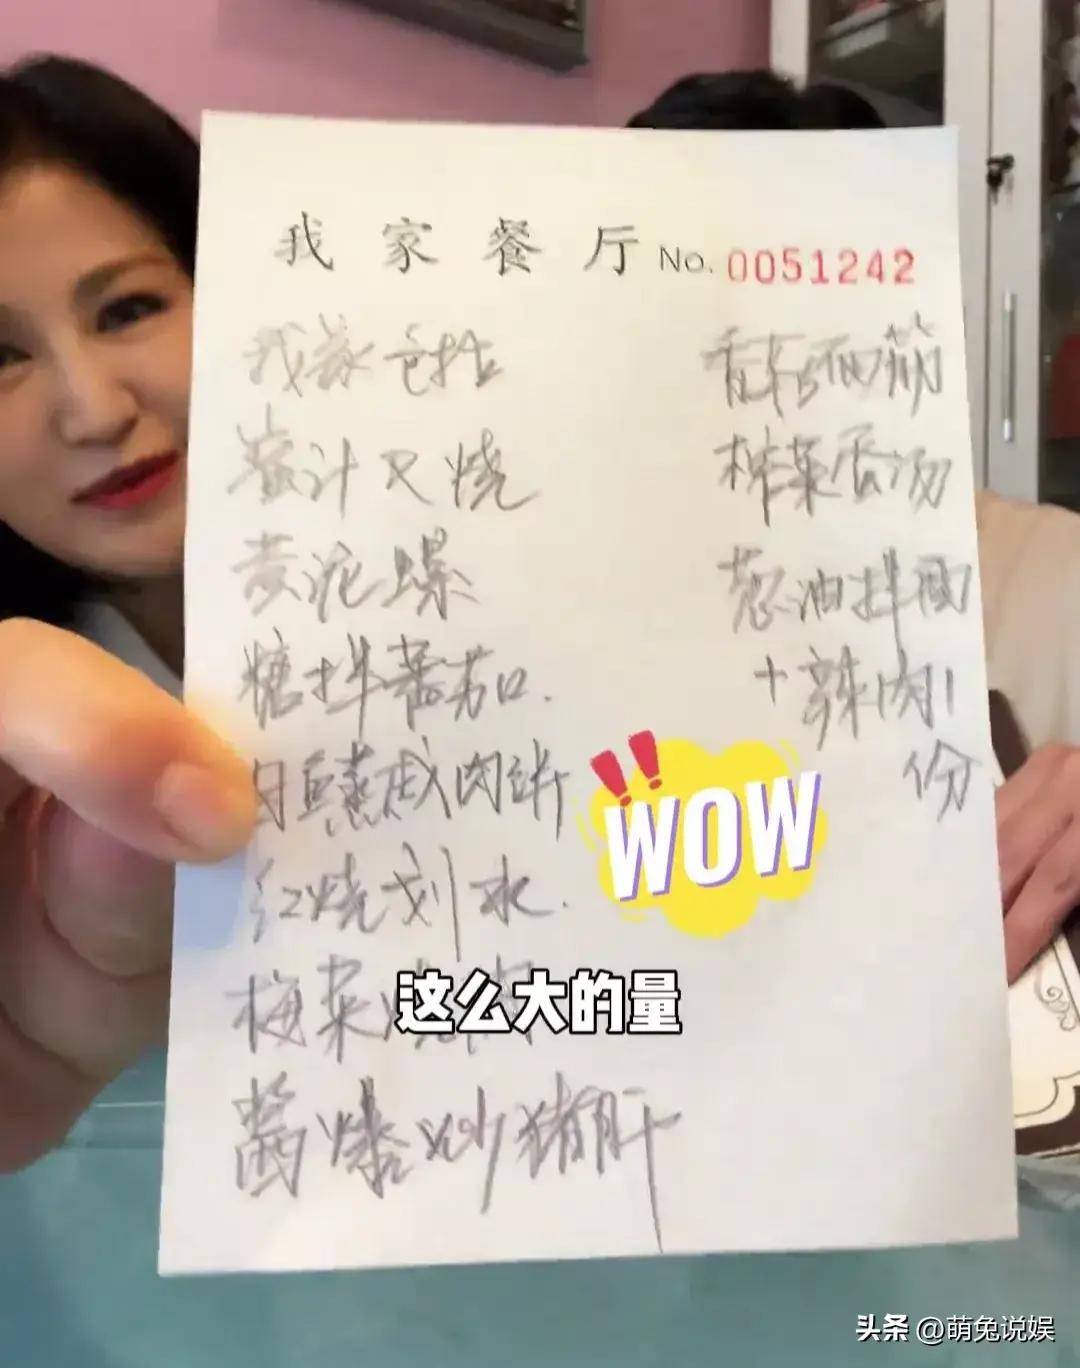 我家餐厅 No. 0051242
我家色拉
蜜汁叉烧
黄泥螺
糖拌番茄
鱼蒸咸肉饼
红烧划水.
梅菜
酱爆炒猪肝
榨菜蛋汤
葱油拌面
+辣肉1
份
WOW
这么大的量
头条 @萌兔说娱